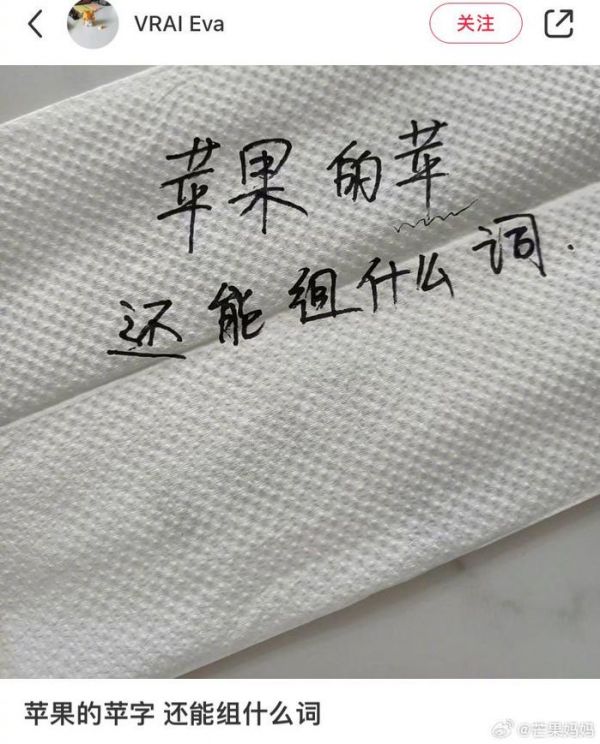 VRAI Eva
关注
苹果的苹
还能组什么词.
苹果的苹字 还能组什么词
@芒果妈妈